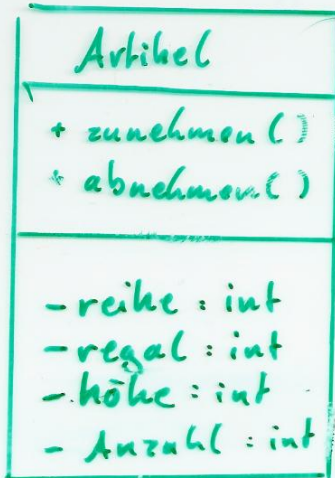 Artikel
+ zunehmen()
+ abnehmen()
- reihe : int
- regal : int
- höhe : int
- Anzahl : int